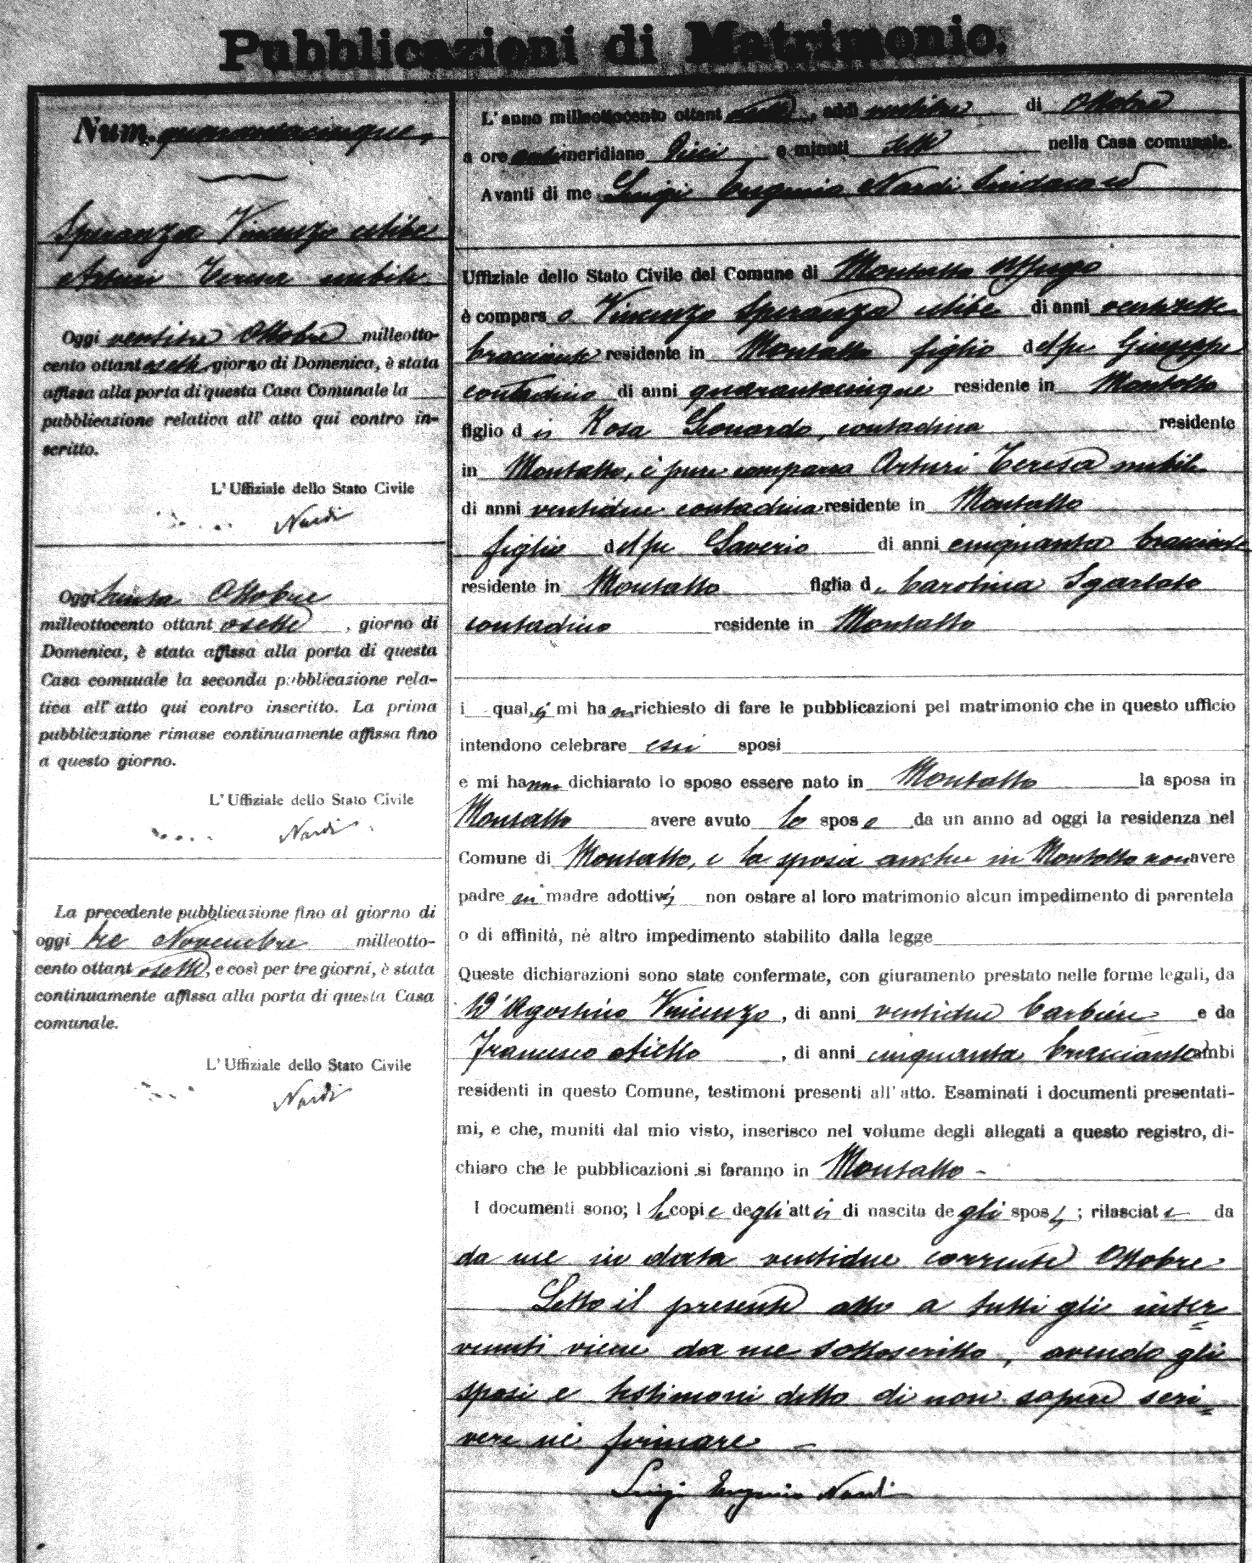 Pubblicazioni di Matrimonio.
Num. quarantacinque.
Speranza Vincenzo celibe
Arturi Teresa nubile
Oggi ventitre Ottobre milleotto-
cento ottantasette giorno di Domenica, è stata
affissa alla porta di questa Casa Comunale la
pubblicazione relativa all' atto qui contro in-
scritto.
L' Uffiziale dello Stato Civile
Nardi
Oggi trenta Ottobre
milleottocento ottantasette, giorno di
Domenica, è stata affissa alla porta di questa
Casa comunale la seconda pubblicazione rela-
tiva all' atto qui contro inscritto. La prima
pubblicazione rimase continuamente affissa fino
a questo giorno.
L' Uffiziale dello Stato Civile
Nardi
La precedente pubblicazione fino al giorno di
oggi tre Novembre milleotto-
cento ottantasette, e così per tre giorni, è stata
continuamente affissa alla porta di questa Casa
comunale.
L' Uffiziale dello Stato Civile
Nardi
L' anno milleottocento ottantasette, addì ventitre di Ottobre
a ore antimeridiane dieci e minuti sette nella Casa comunale.
Avanti di me Luigi Eugenio Nardi Sindaco ed
Uffiziale dello Stato Civile del Comune di Montalto Uffugo
è comparso Vincenzo Speranza celibe di anni ventisette
bracciante residente in Montalto figlio del fu Giuseppe
contadino di anni quarantacinque residente in Montalto
figlio di Rosa Leonardo, contadina residente
in Montalto, è pure comparsa Arturi Teresa nubile
di anni ventidue contadina residente in Montalto
figlio del fu Saverio di anni cinquanta bracciante
residente in Montalto figlia di Carolina Sgarlato
contadina residente in Montalto
i quali mi hanno richiesto di fare le pubblicazioni pel matrimonio che in questo ufficio
intendono celebrare essi sposi
e mi hanno dichiarato lo sposo essere nato in Montalto la sposa in
Montalto avere avuto lo sposo da un anno ad oggi la residenza nel
Comune di Montalto, e la sposa anche in Montalto non avere
padre ni madre adottivi non ostare al loro matrimonio alcun impedimento di parentela
o di affinità, nè altro impedimento stabilito dalla legge
Queste dichiarazioni sono state confermate, con giuramento prestato nelle forme legali, da
D'Agostino Vincenzo, di anni ventidue barbiere e da
Francesco Aiello, di anni cinquanta bracciante ambi
residenti in questo Comune, testimoni presenti all' atto. Esaminati i documenti presentati-
mi, e che, muniti dal mio visto, inserisco nel volume degli allegati a questo registro, di-
chiaro che le pubblicazioni si faranno in Montalto -
I documenti sono; 1 le copie degli atti di nascita degli sposi; rilasciate da
da me in data ventidue corrente Ottobre
Letto il presente atto a tutti gli inter
venuti viene da me sottoscritto, avendo gli
sposi e testimoni detto di non sapere scri-
vere nè firmare -
Luigi Eugenio Nardi